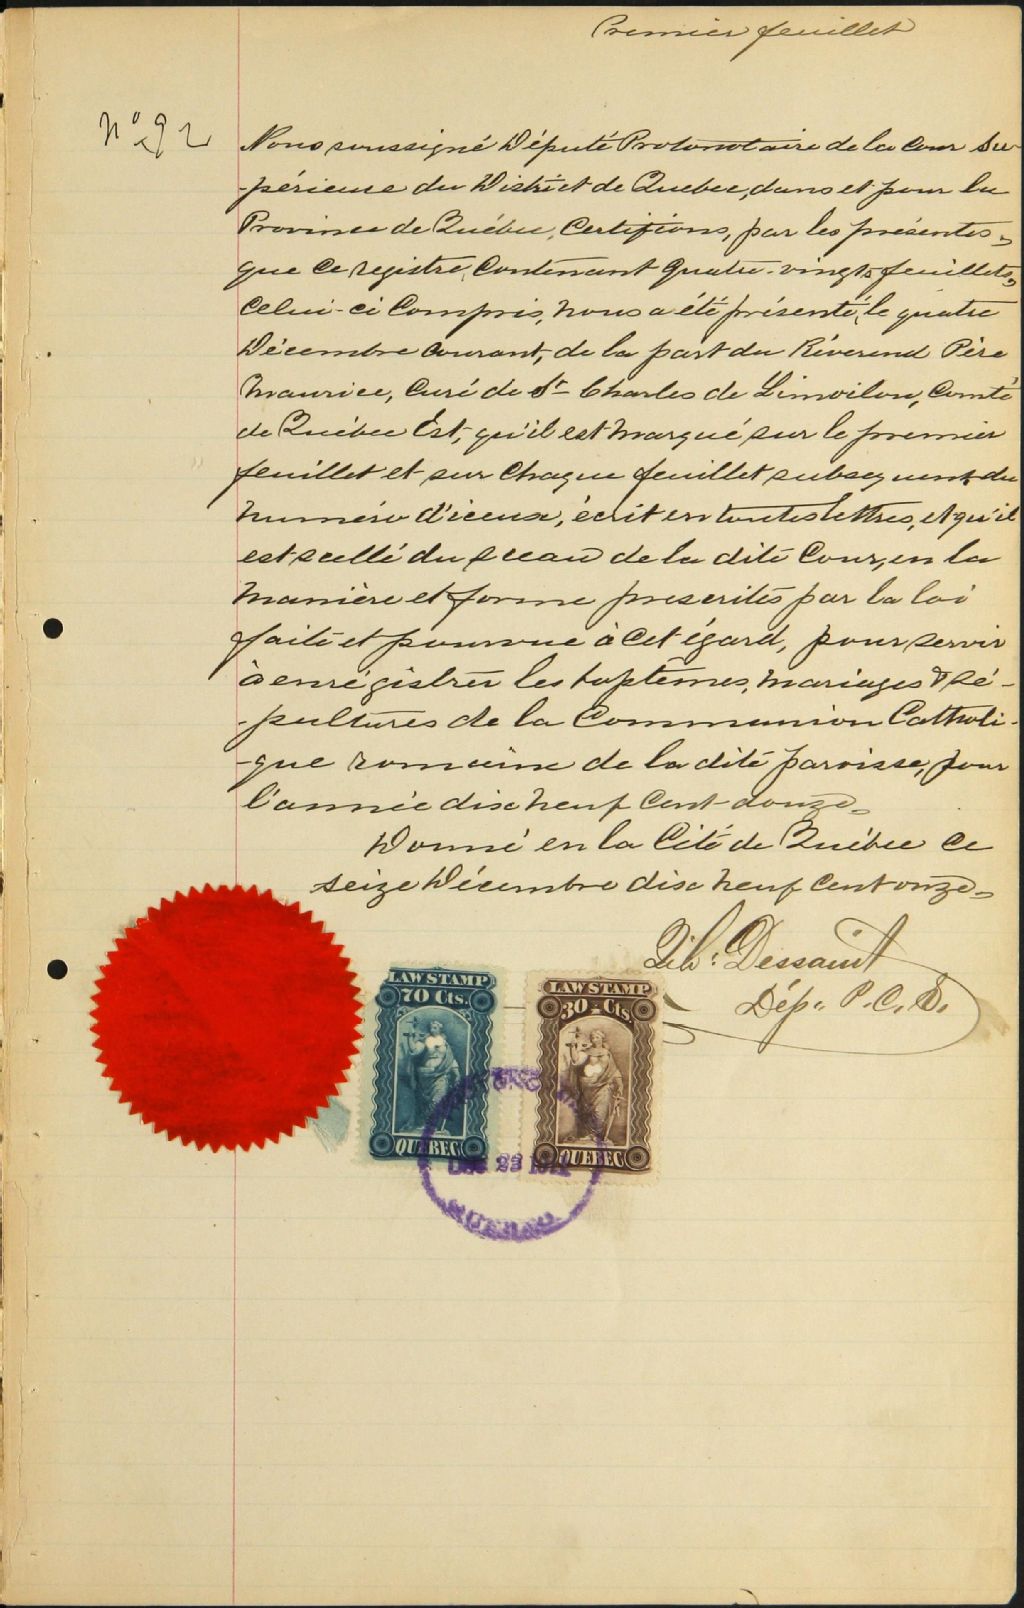 Premier feuillet
No 92
Nous soussigné Député Protonotaire de la cour Su-
-périeure du District de Quebec, dans et pour la
Province de Québec, Certifions, par les présentes,
que ce registre, contenant quatre-vingts feuillets,
celui-ci compris, nous a été présenté, le quatre
Décembre courant, de la part du Réverend Père
Maurice, curé de St Charles de Limoilou, Comté
de Québec Est, qu'il est marqué sur le premier
feuillet et sur chaque feuillet subsequent du
numéro d'iceux, écrit en toutes lettres, et qu'il
est scellé du sceau de la dite Cour, en la
manière et forme prescrites par la loi
faite et pourvue à cet égard, pour servir
à enrégistrer les baptêmes, mariages & sé-
-pultures de la Communion Catholi-
-que romaine de la dite paroisse, pour
l'année dix neuf cent douze.
Donné en la Cité de Québec ce
seize Décembre dix neuf cent onze.
Dessaint
Dép: P. C. S.
LAW STAMP
70 Cts.
QUEBEC
LAW STAMP
30 Cts.
QUEBEC
23
QUEBEC